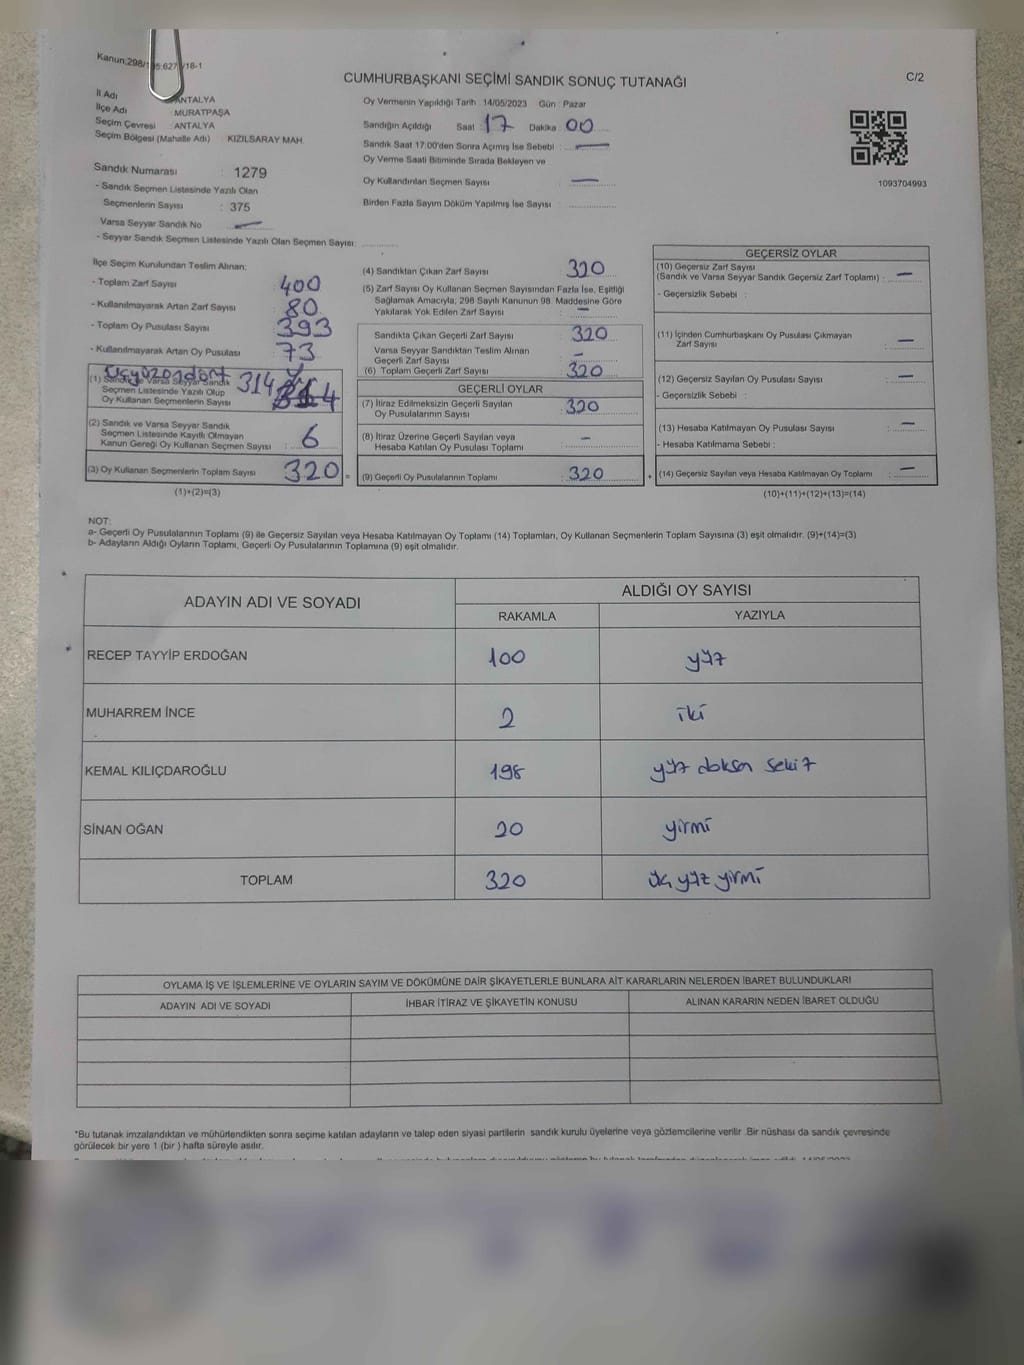 Kanun:298/
/18-1
CUMHURBAŞKANI SEÇİMİ SANDIK SONUÇ TUTANAĞI
C/2
İl Adı ANTALYA
İlçe Adı MURATPAŞA
Seçim Çevresi : ANTALYA
Seçim Bölgesi (Mahalle Adı) : KIZILSARAY MAH.
Sandık Numarası : 1279
- Sandık Seçmen Listesinde Yazılı Olan
Seçmenlerin Sayısı : 375
Varsa Seyyar Sandık No —
- Seyyar Sandık Seçmen Listesinde Yazılı Olan Seçmen Sayısı:
Oy Vermenin Yapıldığı Tarih : 14/05/2023 Gün : Pazar
Sandığın Açıldığı Saat : 17 Dakika : 00
Sandık Saat 17:00'den Sonra Açmış İse Sebebi : —
Oy Verme Saati Bitiminde Sırada Bekleyen ve
Oy Kullandırılan Seçmen Sayısı : —
Birden Fazla Sayım Döküm Yapılmış İse Sayısı :
1093704993
İlçe Seçim Kurulundan Teslim Alınan;
- Toplam Zarf Sayısı : 400
- Kullanılmayarak Artan Zarf Sayısı : 80
- Toplam Oy Pusulası Sayısı : 393
- Kullanılmayarak Artan Oy Pusulası : 73
üçyüzondört
(1) Sandık ve Varsa Seyyar Sandık
Seçmen Listesinde Yazılı Olup
Oy Kullanan Seçmenlerin Sayısı 314
(2) Sandık ve Varsa Seyyar Sandık
Seçmen Listesinde Kayıtlı Olmayan
Kanun Gereği Oy Kullanan Seçmen Sayısı : 6
(3) Oy Kullanan Seçmenlerin Toplam Sayısı : 320 =
(1)+(2)=(3)
(4) Sandıktan Çıkan Zarf Sayısı : 320
(5) Zarf Sayısı Oy Kullanan Seçmen Sayısından Fazla İse, Eşitliği
Sağlamak Amacıyla; 298 Sayılı Kanunun 98. Maddesine Göre
Yakılarak Yok Edilen Zarf Sayısı : —
Sandıkta Çıkan Geçerli Zarf Sayısı : 320
Varsa Seyyar Sandıktan Teslim Alınan
Geçerli Zarf Sayısı : —
(6) Toplam Geçerli Zarf Sayısı : 320
GEÇERLİ OYLAR
(7) İtiraz Edilmeksizin Geçerli Sayılan
Oy Pusulalarının Sayısı : 320
(8) İtiraz Üzerine Geçerli Sayılan veya
Hesaba Katılan Oy Pusulası Toplamı : —
(9) Geçerli Oy Pusulalarının Toplamı : 320 +
GEÇERSİZ OYLAR
(10) Geçersiz Zarf Sayısı
(Sandık ve Varsa Seyyar Sandık Geçersiz Zarf Toplamı) : —
- Geçersizlik Sebebi :
(11) İçinden Cumhurbaşkanı Oy Pusulası Çıkmayan
Zarf Sayısı : —
(12) Geçersiz Sayılan Oy Pusulası Sayısı : —
- Geçersizlik Sebebi :
(13) Hesaba Katılmayan Oy Pusulası Sayısı : —
- Hesaba Katılmama Sebebi :
(14) Geçersiz Sayılan veya Hesaba Katılmayan Oy Toplamı : —
(10)+(11)+(12)+(13)=(14)
NOT:
a- Geçerli Oy Pusulalarının Toplamı (9) ile Geçersiz Sayılan veya Hesaba Katılmayan Oy Toplamı (14) Toplamları, Oy Kullanan Seçmenlerin Toplam Sayısına (3) eşit olmalıdır. (9)+(14)=(3)
b- Adayların Aldığı Oyların Toplamı, Geçerli Oy Pusulalarının Toplamına (9) eşit olmalıdır.
ADAYIN ADI VE SOYADI
ALDIĞI OY SAYISI
RAKAMLA YAZIYLA
RECEP TAYYİP ERDOĞAN 100 yüz
MUHARREM İNCE 2 iki
KEMAL KILIÇDAROĞLU 198 yüz doksan sekiz
SİNAN OĞAN 20 yirmi
TOPLAM 320 üç yüz yirmi
OYLAMA İŞ VE İŞLEMLERİNE VE OYLARIN SAYIM VE DÖKÜMÜNE DAİR ŞİKAYETLERLE BUNLARA AİT KARARLARIN NELERDEN İBARET BULUNDUKLARI
ADAYIN ADI VE SOYADI İHBAR İTİRAZ VE ŞİKAYETİN KONUSU ALINAN KARARIN NEDEN İBARET OLDUĞU
*Bu tutanak imzalandıktan ve mühürlendikten sonra seçime katılan adayların ve talep eden siyasi partilerin sandık kurulu üyelerine veya gözlemcilerine verilir. Bir nüshası da sandık çevresinde
görülecek bir yere 1 (bir ) hafta süreyle asılır.